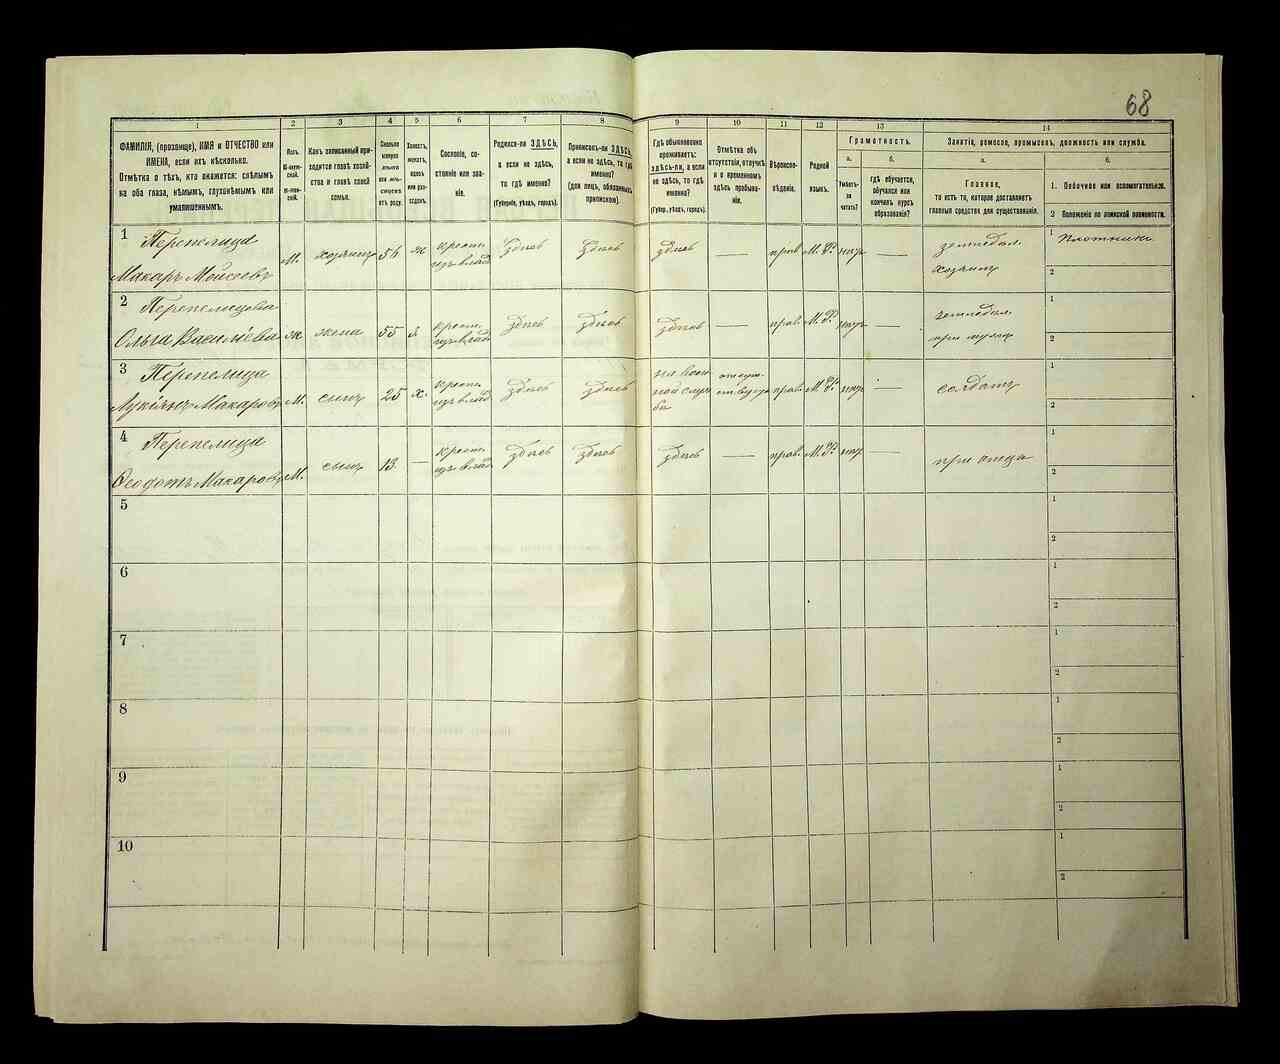 68
1 2 3 4 5 6 7 8 9 10 11 12 13 14
ФАМИЛІЯ, (прозвище), ИМЯ и ОТЧЕСТВО или
ИМЕНА, если ихъ нѣсколько.
Отмѣтка о тѣхъ, кто окажется: слѣпымъ
на оба глаза, нѣмымъ, глухонѣмымъ или
умалишеннымъ.
Полъ.
М-мужской.
Ж-женский.
Какъ записанный при-
ходится главѣ хозяй-
ства и главѣ своей
семьи.
Сколько
минуло
лѣтъ
или мѣ-
сяцевъ
отъ роду.
Холостъ,
женатъ,
вдовъ
или раз-
веденъ.
Сословіе, со-
стояніе или зва-
ніе.
Родился-ли ЗДѢСЬ,
а если не здѣсь,
то гдѣ именно?
(Губернія, уѣздъ, городъ).
Приписанъ-ли ЗДѢСЬ,
а если не здѣсь, то гдѣ
именно?
(для лицъ, обязанныхъ
припискою).
Гдѣ обыкновенно
проживаетъ:
здѣсь-ли, а если
не здѣсь, то гдѣ
именно?
(Губер., уѣздъ, городъ).
Отмѣтка объ
отсутствіи, отлучкѣ
и о временномъ
здѣсь пребыва-
ніи.
Вѣроиспо-
вѣданіе.
Родной
языкъ.
Грамотность.
а.
Умѣетъ-
ли
читать?
б.
гдѣ обучается,
обучался или
кончилъ курсъ
образованія?
Занятіе, ремесло, промыселъ, должность или служба.
а.
Главное,
то есть то, которое доставляетъ
главныя средства для существованія.
б.
1. Побочное или вспомогательное.
2 Положеніе по воинской повинности.
1 Перепелица
Макаръ Моисеевъ
М. хозяинъ 56 ж крест.
изъ влад здѣсь здѣсь здѣсь — прав М. Р. —
земледѣл.
хозяинъ
1 Плотникъ
2
2 Перепелицева
Ольга Васильева
ж жена 55 крест.
изъ влад здѣсь здѣсь здѣсь — прав. М. Р. —
земледѣл.
при мужѣ
1
2
3 Перепелица
Лукіянъ Макаровъ
М. сынъ 25 х. крест.
изъ влад здѣсь здѣсь
на воен
ной служ
бѣ
отсут-
ствуетъ
прав. М. Р. —
солдатъ
1
2
4 Перепелица
Ѳеодотъ Макаровъ
М. сынъ 13. — крест.
изъ влад здѣсь здѣсь здѣсь — прав. М. Р. —
при отцѣ
1
2
5
1
2
6
1
2
7
1
2
8
1
2
9
1
2
10
1
2